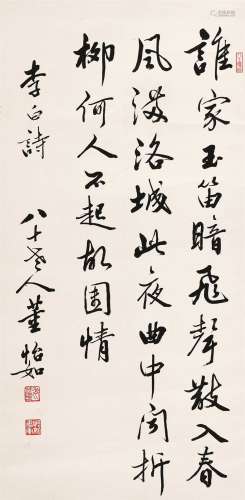 誰家玉笛暗飛聲散入春
風滿洛城此夜曲中闻折
柳何人不起故園情
李白詩
八十老人董怡如